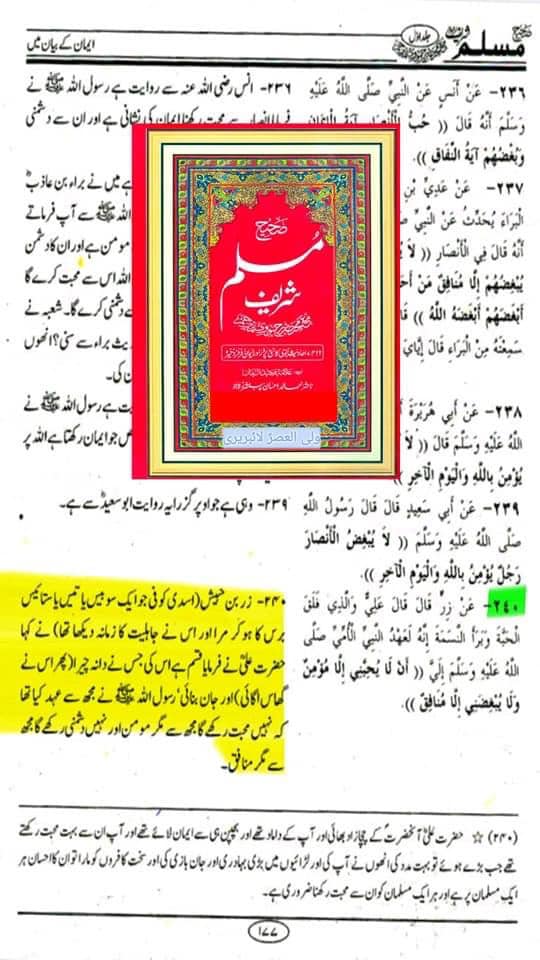 ایمان کے بیان میں
جلد اول
صحیح مسلم
٢٣٦- عَنْ أَنَسٍ عَنْ النَّبِيِّ صَلَّى اللهُ عَلَيْهِ
وَسَلَّمَ أَنَّهُ قَالَ (( حُبُّ الْأَنْصَارِ آيَةُ الْإِيمَانِ
وَبُغْضُهُمْ آيَةُ النِّفَاقِ )).
٢٣٧- عَنْ عَدِيِّ بْنِ
الْبَرَاءَ يُحَدِّثُ عَنْ النَّبِيِّ
أَنَّهُ قَالَ فِي الْأَنْصَارِ (( لَا
يُبْغِضُهُمْ إِلَّا مُنَافِقٌ مَنْ
أَبْغَضَهُمْ أَبْغَضَهُ اللهُ )) قَالَ
سَمِعْتَهُ مِنْ الْبَرَاءِ قَالَ إِيَّايَ
٢٣٨- عَنْ أَبِي هُرَيْرَةَ
اللهُ عَلَيْهِ وَسَلَّمَ قَالَ (( لَا
يُؤْمِنُ بِاللهِ وَالْيَوْمِ الْآخِرِ )).
٢٣٩- عَنْ أَبِي سَعِيدٍ قَالَ قَالَ رَسُولُ اللهِ
صَلَّى اللهُ عَلَيْهِ وَسَلَّمَ (( لَا يُبْغِضُ الْأَنْصَارَ
رَجُلٌ يُؤْمِنُ بِاللهِ وَالْيَوْمِ الْآخِرِ )).
٢٤٠- عَنْ زِرٍّ قَالَ قَالَ عَلِيٌّ وَالَّذِي فَلَقَ
الْحَبَّةَ وَبَرَأَ النَّسَمَةَ إِنَّهُ لَعَهْدُ النَّبِيِّ الْأُمِّيِّ صَلَّى
اللهُ عَلَيْهِ وَسَلَّمَ إِلَيَّ (( أَنْ لَا يُحِبَّنِي إِلَّا مُؤْمِنٌ
وَلَا يُبْغِضَنِي إِلَّا مُنَافِقٌ )).
٢٣٦- انس رضی اللہ عنہ سے روایت ہے رسول اللہ ﷺ نے
فرمایا انصار سے محبت رکھنا ایمان کی نشانی ہے اور ان سے دشمنی
ہے میں نے براء بن عازبؓ
اللہ ﷺ سے آپ فرماتے
مومن ہے اور ان کا دشمن
اللہ اس سے محبت کرے گا
دشمنی کرے گا۔ شعبہ نے
حدیث براء سے سنی؟ انھوں
ن کی۔
ہے رسول اللہ ﷺ نے
جو ایمان رکھتا ہے اللہ پر
٢٣٩- وہی ہے جو اوپر گزرا یہ روایت ابوسعیدؓ سے ہے۔
٢٤٠- زر بن حبیش (اسدی کوفی جو ایک سو بیس یا تیس یا ستائیس
برس کا ہو کر مرا اور اس نے جاہلیت کا زمانہ دیکھا تھا) نے کہا
حضرت علیؓ نے فرمایا قسم ہے اس کی جس نے دانہ چیرا (پھر اس نے
گھاس اگائی) اور جان بنائی' رسول اللہ ﷺ نے مجھ سے عہد کیا تھا
کہ نہیں محبت رکھے گا مجھ سے مگر مومن اور نہیں دشمنی رکھے گا مجھ
سے مگر منافق۔
صحیح
مسلم
شریف
ولی العصرؑ لائبریری
(٢٤٠) ☆ حضرت علیؓ آنحضرتؐ کے چچا زاد بھائی اور آپ کے داماد تھے اور بچپن ہی سے ایمان لائے تھے اور آپ ان سے بہت محبت رکھتے
تھے جب بڑے ہوئے تو بہت مدد کی انھوں نے آپ کی اور لڑائیوں میں بڑی بہادری اور جان بازی کی اور سخت کافروں کو مارا تو ان کا احسان ہر
ایک مسلمان پر ہے اور ہر ایک مسلمان کو ان سے محبت رکھنا ضروری ہے۔
١٧٧